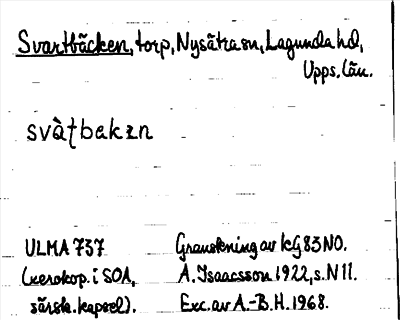 Svartbäcken, torp, Nysätra sn, Lagunda hd,
Upps. län.
svàʈbakɪn
ULMA 737 Granskning av kG 83 NO.
(xerokop. i SOA, A. Isaacsson 1922, s. N 11.
särsk. kapsel). Exc. av A.-B. H. 1968.